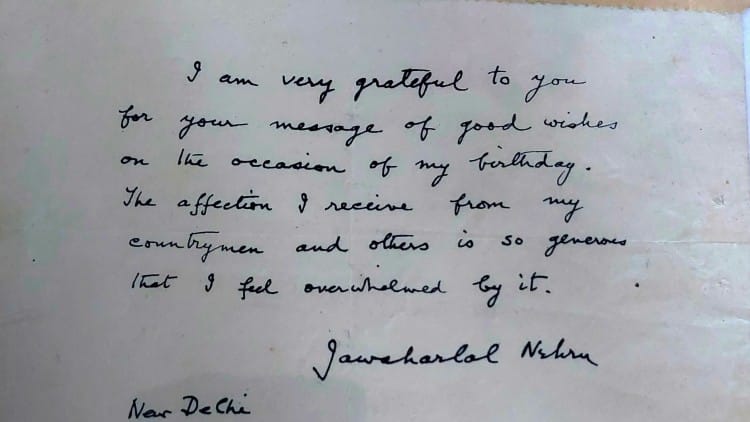 I am very grateful to you
for your message of good wishes
on the occasion of my birthday.
The affection I receive from my
countrymen and others is so generous
that I feel overwhelmed by it.
Jawaharlal Nehru
New Delhi